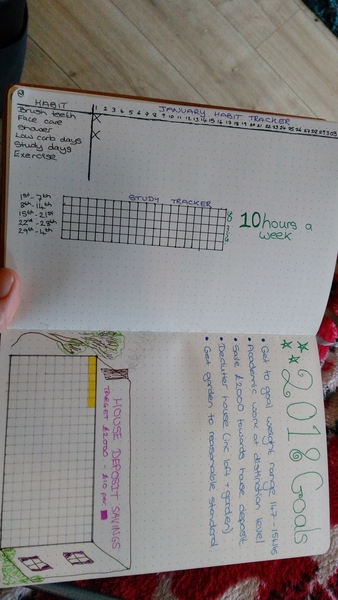 JANUARY HABIT TRACKER
HABIT 1 2 3 4 5 6 7 8 9 10 11 12 13 14 15 16 17 18 19 20 21 22 23 24 25 26 27 28 29 30
Brush teeth
Face care
Shower
Low carb days
Study days
Exercise
STUDY TRACKER
1st - 7th
8th - 14th
15th - 21st
22nd - 28th
29th - 4th
10 hours a
week
2018 Goals
• Get to goal weight range
• Academic work at distinction level
• Save £2000 towards house deposit
• Declutter house (inc loft + garden)
• Get garden to reasonable standard
HOUSE DEPOSIT SAVINGS
TARGET £2000 - £10 per